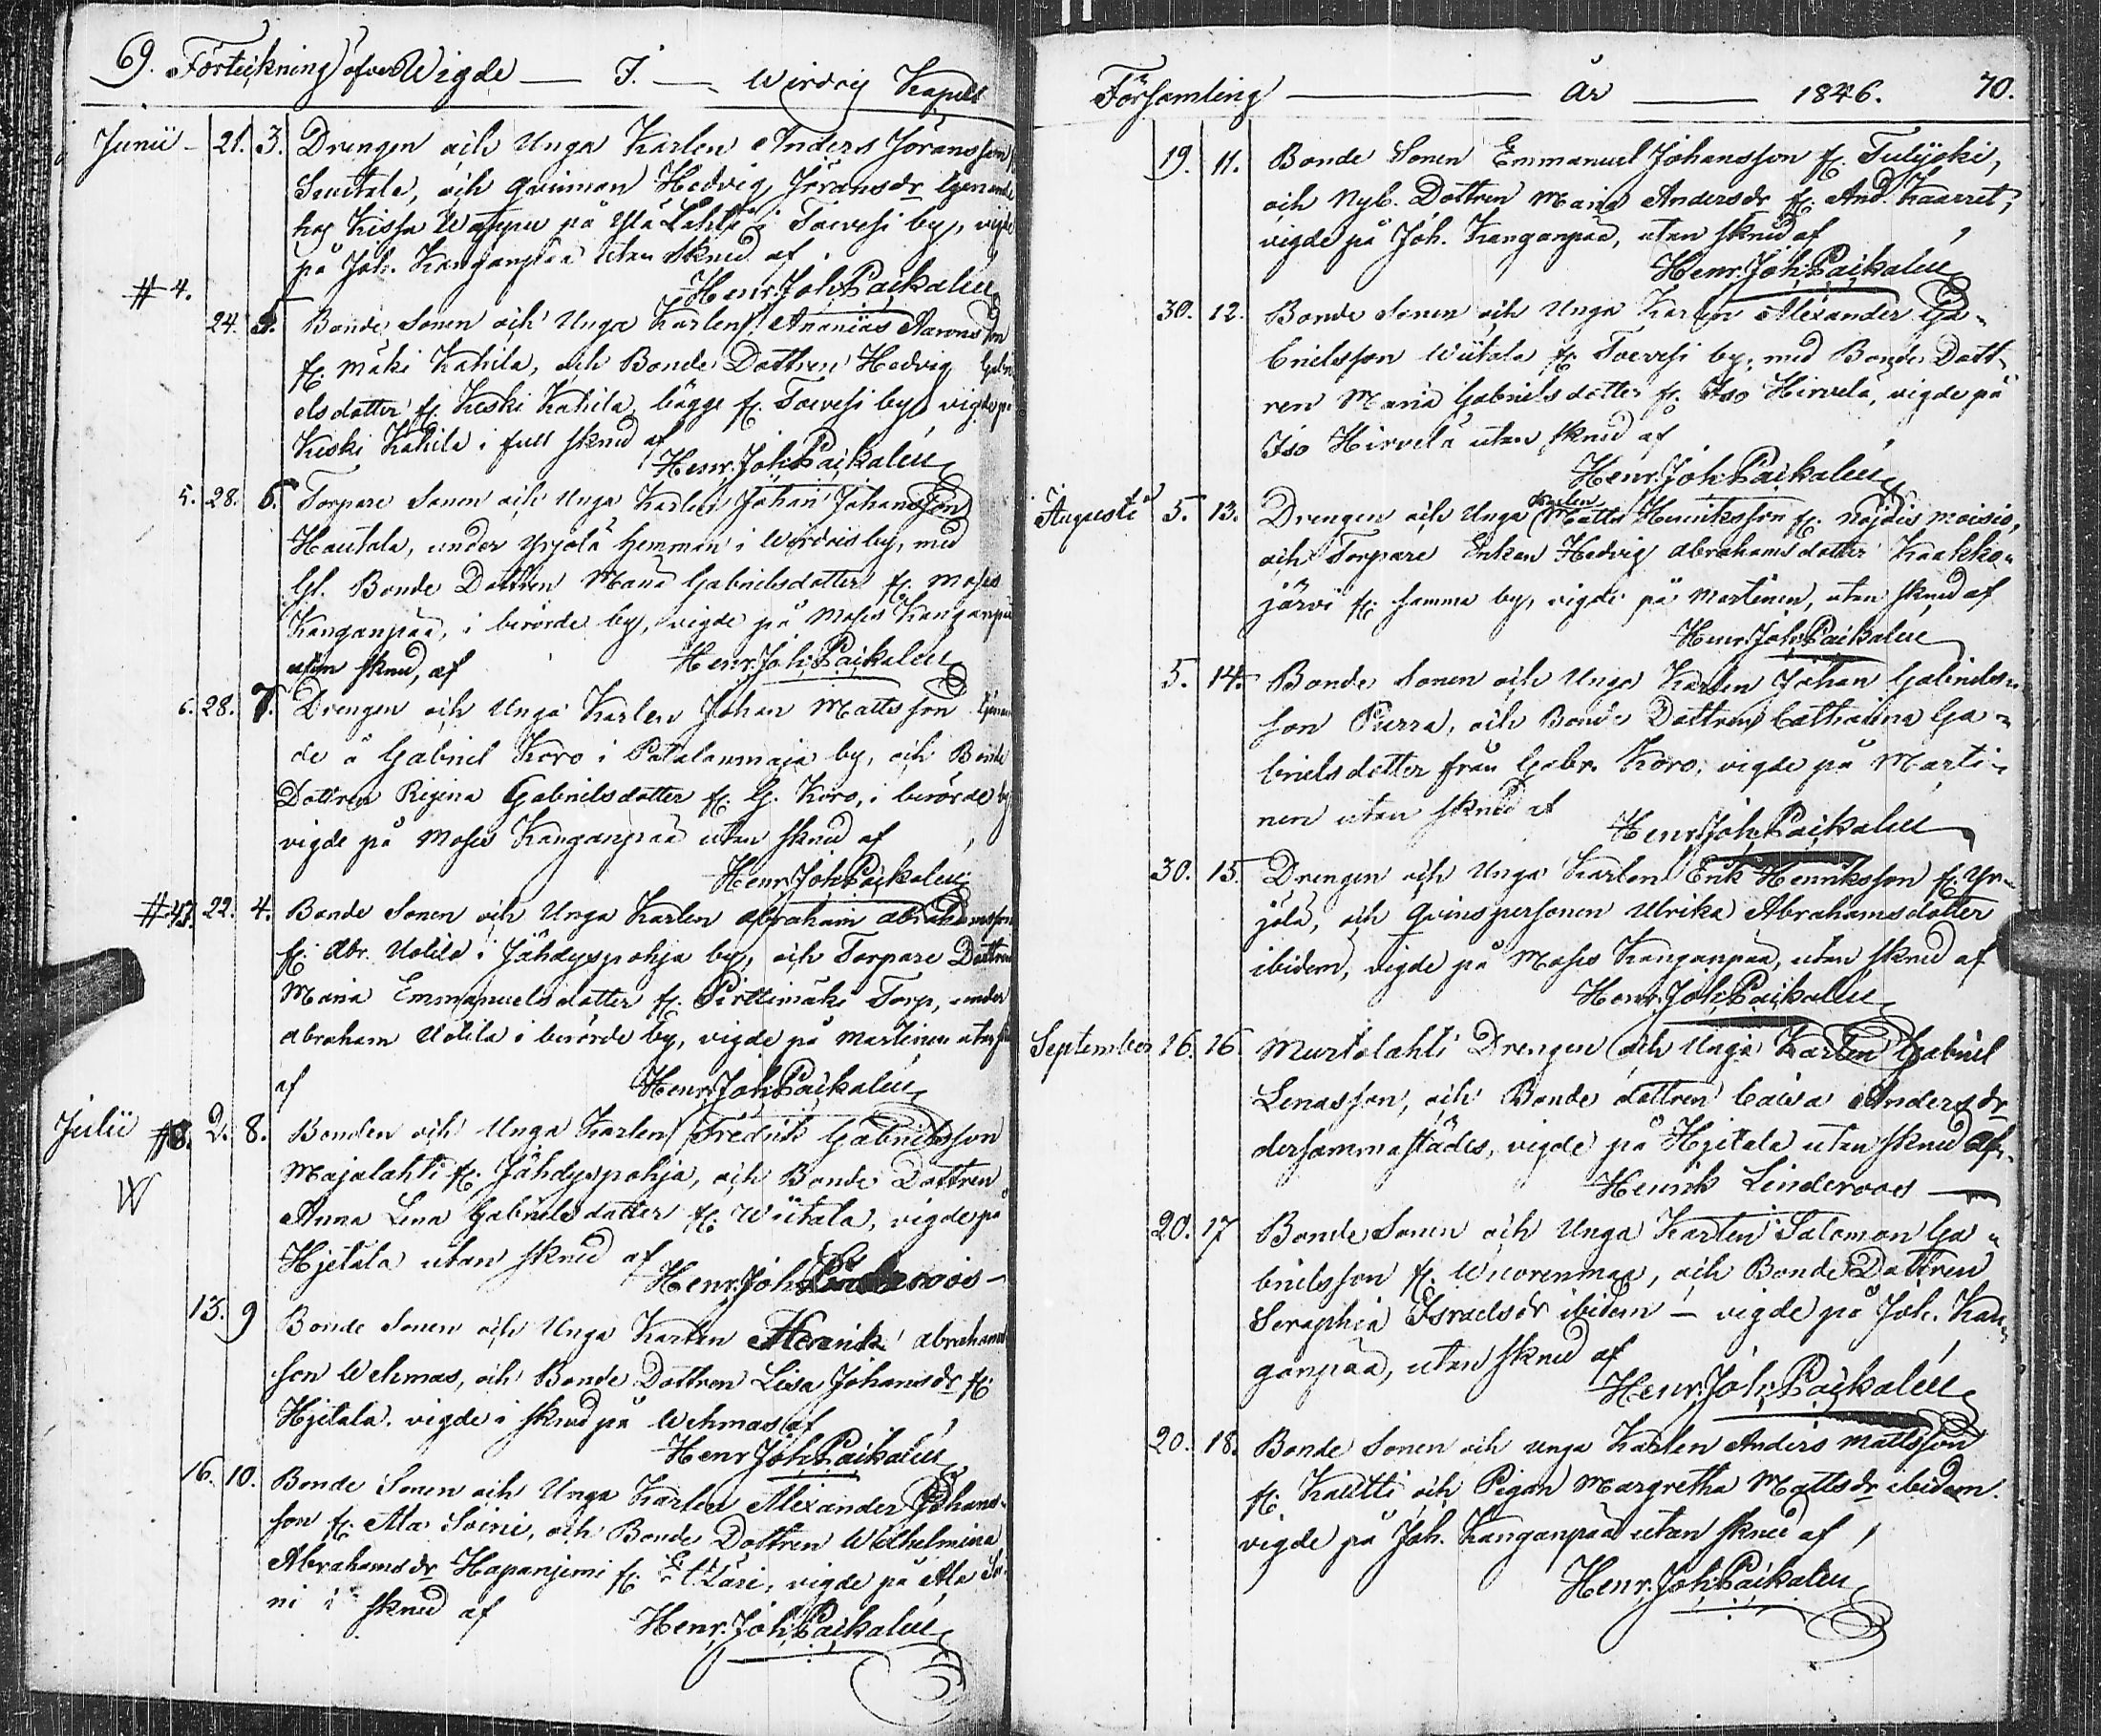 69. Förteckning öfver Wigde — I. — Wirdois Kapell
Junii - 21. 3. Drengen och Unga Karlen Anders Jöransson
och qvinnan Hedvig Jöransdr tjenande
hos Kissa Wappu på Ylä Lahti i Toevesi by, vigde
på Joh. Kanganpää utan skrud af
Henr. Joh. Paikalén
# 4.
24. 5. Bonde Sonen och Unga Karlen Ananias Aaronsson
fr. Mäki Kahila, och Bonde Dottren Hedvig Gabri
elsdotter fr. Keski Kahila, bägge fr. Toevesi by, vigde på
Keski Kahila i full skrud af
Henr. Joh. Paikalén
5. 28. 6. Torpare Sonen och Unga Karlen Johan Johansson
Hautala, under Yrjölä hemman i Wirdois by, med
Gl. Bonde Dottren Maria Gabrielsdotter fr. Moses
Kanganpää, i berörde by, vigde på Moses Kanganpää
utan skrud, af Henr. Joh. Paikalén
6. 28. 7. Drengen och Unga Karlen Johan Mattsson tjenan
de å Gabriel Koro i Patalanmaja by, och Bonde
Dottren Regina Gabrielsdotter fr. G. Koro, i berörde by
vigde på Moses Kanganpää utan skrud af
Henr. Joh. Paikalén
22. 4. Bonde Sonen och Unga Karlen Abraham Abrahamsson
fr. Abr. Uotila i Jähdyspohja by, och Torpare Dottren
Maria Emmanuelsdotter fr. Pirttimäki Torp, under
Abraham Uotila i berörde by, vigde på Martinen utan
af Henr. Joh. Paikalén
Julii #8. 2. 8. Bonden och Unga Karlen Fredrik Gabrielsson
Majalahti fr. Jähdyspohja, och Bonde Dottren
W
Anna Lena Gabrielsdotter fr. Wiitala, vigde på
Hjetala utan skrud af
Henr. Joh. Linderoos -
13. 9 Bonde Sonen och Unga Karlen Henrik Abrahams
son Wehmas, och Bonde Dottren Lisa Johansdr fr.
Hjetala, vigde i skrud på Wehmas af
Henr Joh. Paikalén
16. 10. Bonde Sonen och Unga Karlen Alexander Johans-
son fr. Ala Soini, och Bonde Dottren Wilhelmina
Abrahamsdr Hapanjemi fr. Etläri, vigde på Ala Soi
ni i skrud af
Henr. Joh. Paikalén
Församling — År — 1846. 70.
19. 11. Bonde Sonen Emmanuel Johansson fr. Tulijoki,
och Nyb. Dottren Maria Andersdr fr. And. Kaarret,
vigde på Joh. Kanganpää, utan skrud af
Henr. Joh. Paikalén
30. 12. Bonde Sonen och Unga Karlen Alexander Ga-
brielsson Wiitala fr. Toevesi by, med Bonde Dott-
ren Maria Gabrielsdotter fr. Iso Hirvelä, vigde på
Iso Hirvelä utan skrud af
Henr. Joh. Paikalén
Augusti 5. 13. Drengen och Unga Karlen Matts Henriksson fr. Nöjdis moisio,
och Torpare Enkan Hedvig Abrahamsdotter Kaakko-
järvi fr. samma by, vigde på Martinen, utan skrud af
Henr. Joh. Paikalén
5. 14. Bonde Sonen och Unga Karlen Johan Gabriels-
son Purra, och Bonde Dottren Catharina Ga-
brielsdotter från Gabr. Koro, vigde på Marti-
nen utan skrud af
Henr. Joh. Paikalén
30. 15. Drengen och Unga Karlen Erik Henriksson fr. Yr-
jölä, och Qvinspersonen Ulrika Abrahamsdotter
ibidem, vigde på Moses Kanganpää, utan skrud af
Henr. Joh. Paikalén
September 16. 16. Murtolahti Drengen och Unga Karlen Gabriel
Lenasson, och Bonde dottren Caisa Andersdr
dersammastädes, vigde på Hjetala utan skrud af.
Henrik Linderoos —
20. 17 Bonde Sonen och Unga Karlen Salomon Ga-
brielsson fr. Wuorenmaa, och Bonde Dottren
Seraphia Israelsdr ibidem — vigde på Joh. Kan-
ganpää, utan skrud af
Henr. Joh. Paikalén
20. 18. Bonde Sonen och unga Karlen Anders Mattsson
fr. Kautti och Pigan Margretha Mattsdr ibidem.
vigde på Joh. Kanganpää utan skrud af
Henr. Joh. Paikalén